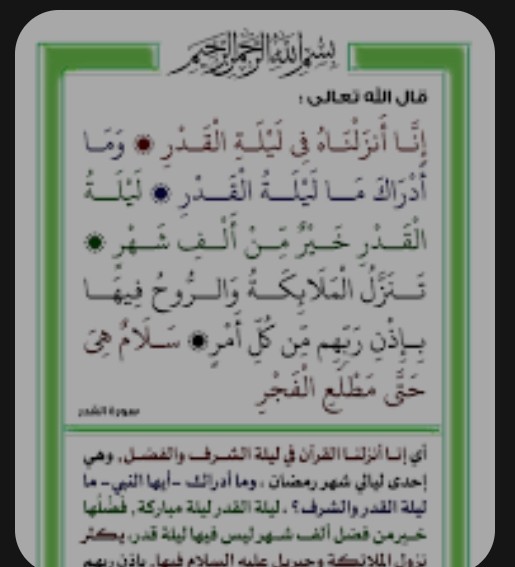 بسم الله الرحمن الرحيم
قال الله تعالى :
إِنَّا أَنزَلْنَاهُ فِي لَيْلَةِ الْقَدْرِ ۞ وَمَا
أَدْرَاكَ مَا لَيْلَةُ الْقَدْرِ ۞ لَيْلَةُ
الْقَدْرِ خَيْرٌ مِّنْ أَلْفِ شَهْرٍ ۞
تَنَزَّلُ الْمَلَائِكَةُ وَالرُّوحُ فِيهَا
بِإِذْنِ رَبِّهِم مِّن كُلِّ أَمْرٍ ۞ سَلَامٌ هِيَ
حَتَّى مَطْلَعِ الْفَجْرِ
سورة القدر
أي إنا أنزلنا القرآن في ليلة الشرف والفضل، وهي
إحدى ليالي شهر رمضان ، وما أدراك -أيها النبي- ما
ليلة القدر والشرف؟ ، ليلة القدر ليلة مباركة، فضلها
خير من فضل ألف شهر ليس فيها ليلة قدر، يكثر
نزول الملائكة وجبريل عليه السلام فيها، بإذن ربهم